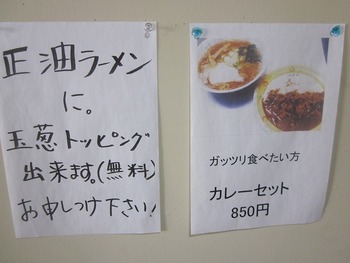 正油ラーメン
に。
玉葱トッピング
出来ます。(無料)
お申しつけ下さい!
ガッツリ食べたい方
カレーセット
850円